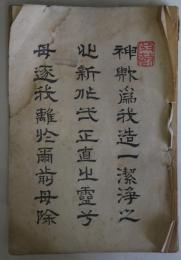 神歟爲我造一潔淨之
心新作我正直之靈兮
毋逐我離於爾前毋除